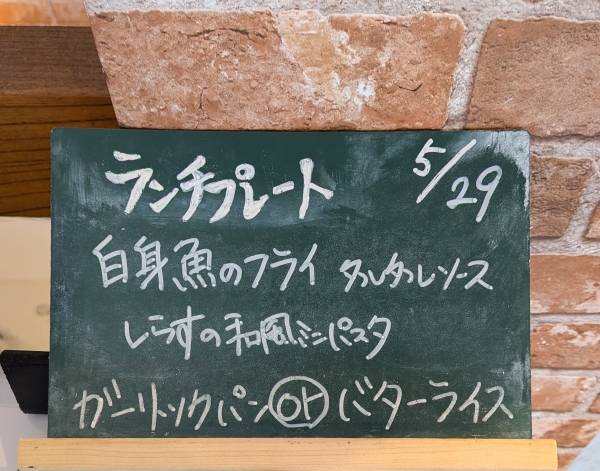 ランチプレート 5/29
白身魚のフライ タルタルソース
しらすの和風ミニパスタ
ガーリックパン or バターライス